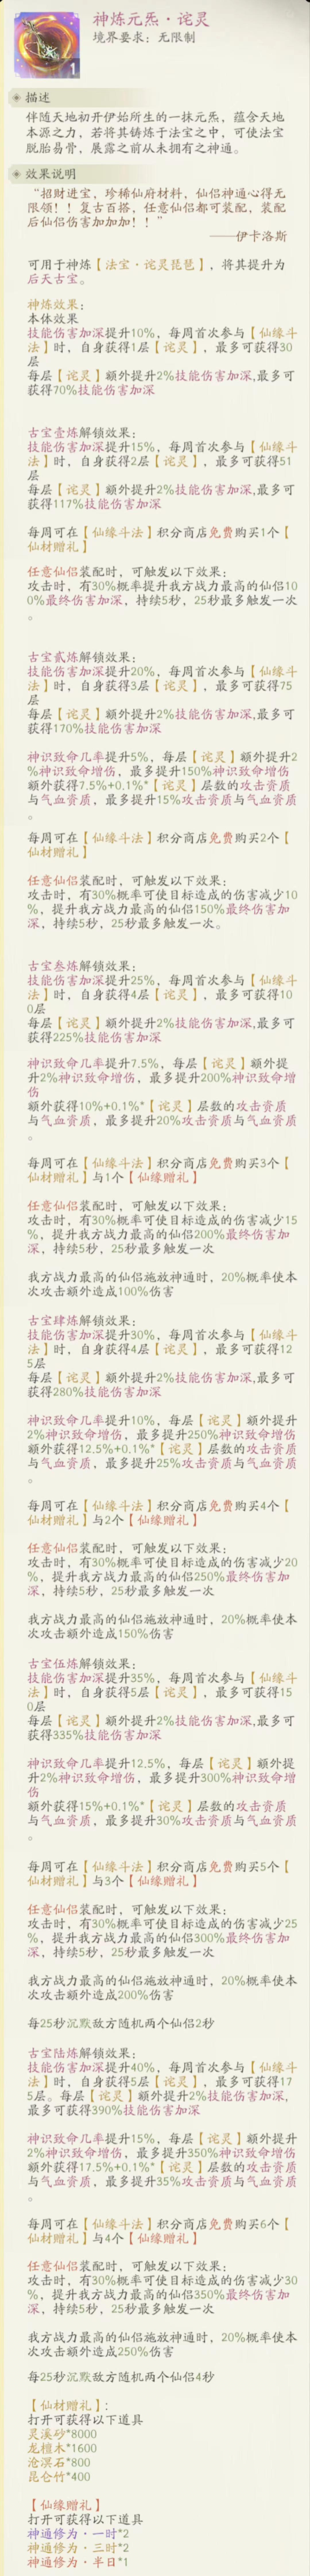 神炼元炁·诧灵
境界要求：无限制
1
描述
伴随天地初开伊始所生的一抹元炁，蕴含天地
本源之力，若将其铸炼于法宝之中，可使法宝
脱胎易骨，展露之前从未拥有之神通。
效果说明
“招财进宝，珍稀仙府材料，仙侣神通心得无
限领！！复古百搭，任意仙侣都可装配，装配
后仙侣伤害加加加！！”
——伊卡洛斯
可用于神炼【法宝·诧灵琵琶】，将其提升为
后天古宝。
神炼效果：
本体效果
技能伤害加深提升10%，每周首次参与【仙缘斗
法】时，自身获得1层【诧灵】，最多可获得30
层
每层【诧灵】额外提升2%技能伤害加深,最多可
获得70%技能伤害加深
古宝壹炼解锁效果：
技能伤害加深提升15%，每周首次参与【仙缘斗
法】时，自身获得2层【诧灵】，最多可获得51
层
每层【诧灵】额外提升2%技能伤害加深,最多可
获得117%技能伤害加深
每周可在【仙缘斗法】积分商店免费购买1个【
仙材赠礼】
任意仙侣装配时，可触发以下效果：
攻击时，有30%概率提升我方战力最高的仙侣10
0%最终伤害加深，持续5秒，25秒最多触发一次
。
古宝贰炼解锁效果：
技能伤害加深提升20%，每周首次参与【仙缘斗
法】时，自身获得3层【诧灵】，最多可获得75
层
每层【诧灵】额外提升2%技能伤害加深,最多可
获得170%技能伤害加深
神识致命几率提升5%，每层【诧灵】额外提升2
%神识致命增伤，最多提升150%神识致命增伤
额外获得7.5%+0.1%*【诧灵】层数的攻击资质
与气血资质，最多提升15%攻击资质与气血资质
。
每周可在【仙缘斗法】积分商店免费购买2个【
仙材赠礼】
任意仙侣装配时，可触发以下效果：
攻击时，有30%概率可使目标造成的伤害减少10
%，提升我方战力最高的仙侣150%最终伤害加
深，持续5秒，25秒最多触发一次。
古宝叁炼解锁效果：
技能伤害加深提升25%，每周首次参与【仙缘斗
法】时，自身获得4层【诧灵】，最多可获得10
0层
每层【诧灵】额外提升2%技能伤害加深,最多可
获得225%技能伤害加深
神识致命几率提升7.5%，每层【诧灵】额外提
升2%神识致命增伤，最多提升200%神识致命增
伤
额外获得10%+0.1%*【诧灵】层数的攻击资质
与气血资质，最多提升20%攻击资质与气血资质
。
每周可在【仙缘斗法】积分商店免费购买3个【
仙材赠礼】与1个【仙缘赠礼】
任意仙侣装配时，可触发以下效果：
攻击时，有30%概率可使目标造成的伤害减少15
%，提升我方战力最高的仙侣200%最终伤害加
深，持续5秒，25秒最多触发一次
我方战力最高的仙侣施放神通时，20%概率使本
次攻击额外造成100%伤害
古宝肆炼解锁效果：
技能伤害加深提升30%，每周首次参与【仙缘斗
法】时，自身获得4层【诧灵】，最多可获得12
5层
每层【诧灵】额外提升2%技能伤害加深,最多可
获得280%技能伤害加深
神识致命几率提升10%，每层【诧灵】额外提升
2%神识致命增伤，最多提升250%神识致命增伤
额外获得12.5%+0.1%*【诧灵】层数的攻击资质
与气血资质，最多提升25%攻击资质与气血资质
。
每周可在【仙缘斗法】积分商店免费购买4个【
仙材赠礼】与2个【仙缘赠礼】
任意仙侣装配时，可触发以下效果：
攻击时，有30%概率可使目标造成的伤害减少20
%，提升我方战力最高的仙侣250%最终伤害加
深，持续5秒，25秒最多触发一次
我方战力最高的仙侣施放神通时，20%概率使本
次攻击额外造成150%伤害
古宝伍炼解锁效果：
技能伤害加深提升35%，每周首次参与【仙缘斗
法】时，自身获得5层【诧灵】，最多可获得15
0层
每层【诧灵】额外提升2%技能伤害加深,最多可
获得335%技能伤害加深
神识致命几率提升12.5%，每层【诧灵】额外提
升2%神识致命增伤，最多提升300%神识致命增
伤
额外获得15%+0.1%*【诧灵】层数的攻击资质
与气血资质，最多提升30%攻击资质与气血资质
。
每周可在【仙缘斗法】积分商店免费购买5个【
仙材赠礼】与3个【仙缘赠礼】
任意仙侣装配时，可触发以下效果：
攻击时，有30%概率可使目标造成的伤害减少25
%，提升我方战力最高的仙侣300%最终伤害加
深，持续5秒，25秒最多触发一次
我方战力最高的仙侣施放神通时，20%概率使本
次攻击额外造成200%伤害
每25秒沉默敌方随机两个仙侣2秒
古宝陆炼解锁效果：
技能伤害加深提升40%，每周首次参与【仙缘斗
法】时，自身获得5层【诧灵】，最多可获得17
5层。每层【诧灵】额外提升2%技能伤害加深,
最多可获得390%技能伤害加深
神识致命几率提升15%，每层【诧灵】额外提升
2%神识致命增伤，最多提升350%神识致命增伤
额外获得17.5%+0.1%*【诧灵】层数的攻击资质
与气血资质，最多提升35%攻击资质与气血资质
。
每周可在【仙缘斗法】积分商店免费购买6个【
仙材赠礼】与4个【仙缘赠礼】
任意仙侣装配时，可触发以下效果：
攻击时，有30%概率可使目标造成的伤害减少30
%，提升我方战力最高的仙侣350%最终伤害加
深，持续5秒，25秒最多触发一次
我方战力最高的仙侣施放神通时，20%概率使本
次攻击额外造成250%伤害
每25秒沉默敌方随机两个仙侣4秒
【仙材赠礼】：
打开可获得以下道具
灵溪砂*8000
龙檀木*1600
沧溟石*800
昆仑竹*400
【仙缘赠礼】
打开可获得以下道具
神通修为·一时*2
神通修为·三时*2
神通修为·半日*1